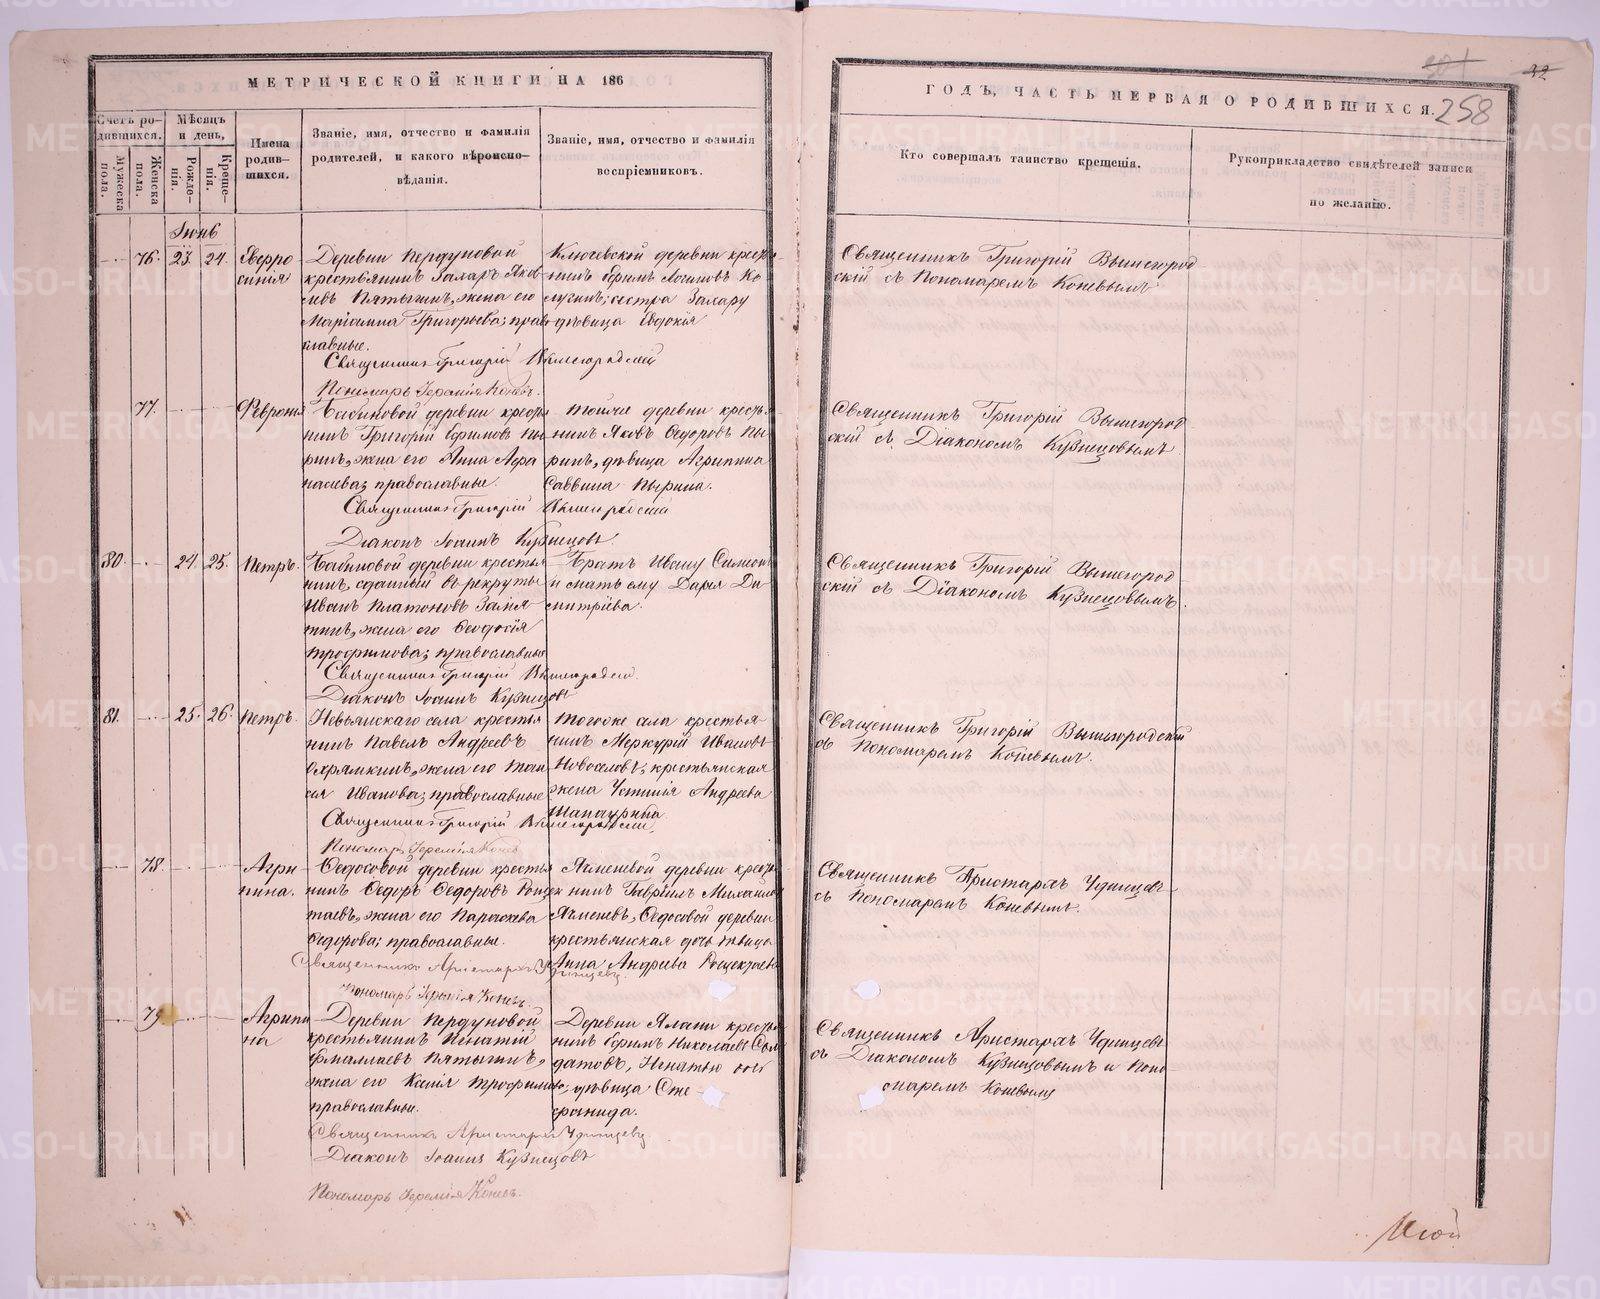 МЕТРИЧЕСКОЙ КНИГИ НА 186
ГОДЪ, ЧАСТЬ ПЕРВАЯ О РОДИВШИХСЯ.
258
Счетъ ро-
дившихся.
Мѣсяцъ
и день,
Мужеска
пола.
Женска
пола.
Рожде-
нія.
Креще-
нія.
Имена
родив-
шихся.
Званіе, имя, отчество и фамилія
родителей, и какого вѣроиспо-
вѣданія.
Званіе, имя, отчество и фамилія
воспріемниковъ.
Кто совершалъ таинство крещенія.
Рукоприкладство свидѣтелей записи
по желанію.
Іюнь
76. 23. 24.
Евфро
синія
Деревни Пердуновой
крестьянинъ Захаръ Яков
левъ Пятыгинъ, жена его
Маріамна Григорьева; право
славные.
Священникъ Григорій Вышегородскій
Пономарь Іеремія Коневъ.
Ключевской деревни кресть
нинъ Ефимъ Логиновъ Ко
лугинъ; сестра Захару
дѣвица Евдокія
Священникъ Григорій Вышегород
скій съ Пономаремъ Коневымъ
77.
Февронія
Бабиновой деревни кресть
нинъ Григорій Ефимовъ Пы
ринъ, жена его Анна Афа
насьева; православные.
Священникъ Григорій Вышегородскій
Діаконъ Іоаннъ Кузнецовъ.
Тойже деревни кресть
нинъ Яковъ Ѳедоровъ Пы
ринъ, дѣвица Агриппина
Саввина Пырина.
Священникъ Григорій Вышегород
скій съ Діакономъ Кузнецовымъ
80. 24. 25.
Петръ.
Бабиновой деревни крестья
нинъ, сданный въ рекруты
Иванъ Платоновъ
тинъ, жена его Ѳеодосія
Трофимова; православные
Священникъ Григорій Вышегородскій.
Діаконъ Іоаннъ Кузнецовъ
Братъ Ивану Симеонъ
и мать ему Дарья Ди
митріева.
Священникъ Григорій Вышегород
скій съ Діакономъ Кузнецовымъ.
81. 25. 26.
Петръ.
Невьянскаго села крестья
нинъ Павелъ Андреевъ
Охрямкинъ, жена его Таи
сья Иванова; православные
Священникъ Григорій Вышегородскій.
Пономарь Іеремія Коневъ
Тогоже села крестья
нинъ Меркурій Ивановъ
Новоселовъ; крестьянская
жена Устинія Андреева
Шапаурина
Священникъ Григорій Вышегородскій
съ Пономаремъ Коневымъ.
78.
Агри
пина.
Ѳедосовой деревни крестья
нинъ Ѳедоръ Ѳедоровъ Рощек
таевъ, жена его Параскева
Ѳедорова; православные.
Священникъ Аристархъ Удинцевъ
Пономарь Іеремія Коневъ.
Ячменевой деревни кресть
нинъ Гавріилъ Михайлов
Ячменевъ, Ѳедосовой деревни
крестьянская дочь дѣвица
Анна Андреева Рощектаева
Священникъ Аристархъ Удинцевъ
съ Пономаремъ Коневымъ.
79
Агрипи
на
Деревни Пердуновой
крестьянинъ Игнатій
Пятыгинъ,
жена его Ксенія Трофимова;
православные.
Священникъ Аристархъ Удинцевъ
Діаконъ Іоаннъ Кузнецовъ
Пономарь Іеремія Коневъ.
Деревни Ялани кресть
нинъ Ефимъ Николаевъ Сол
датовъ, Игнатью
дѣвица Сте
фанида.
Священникъ Аристархъ Удинцевъ
съ Діакономъ Кузнецовымъ и Поно
маремъ Коневымъ